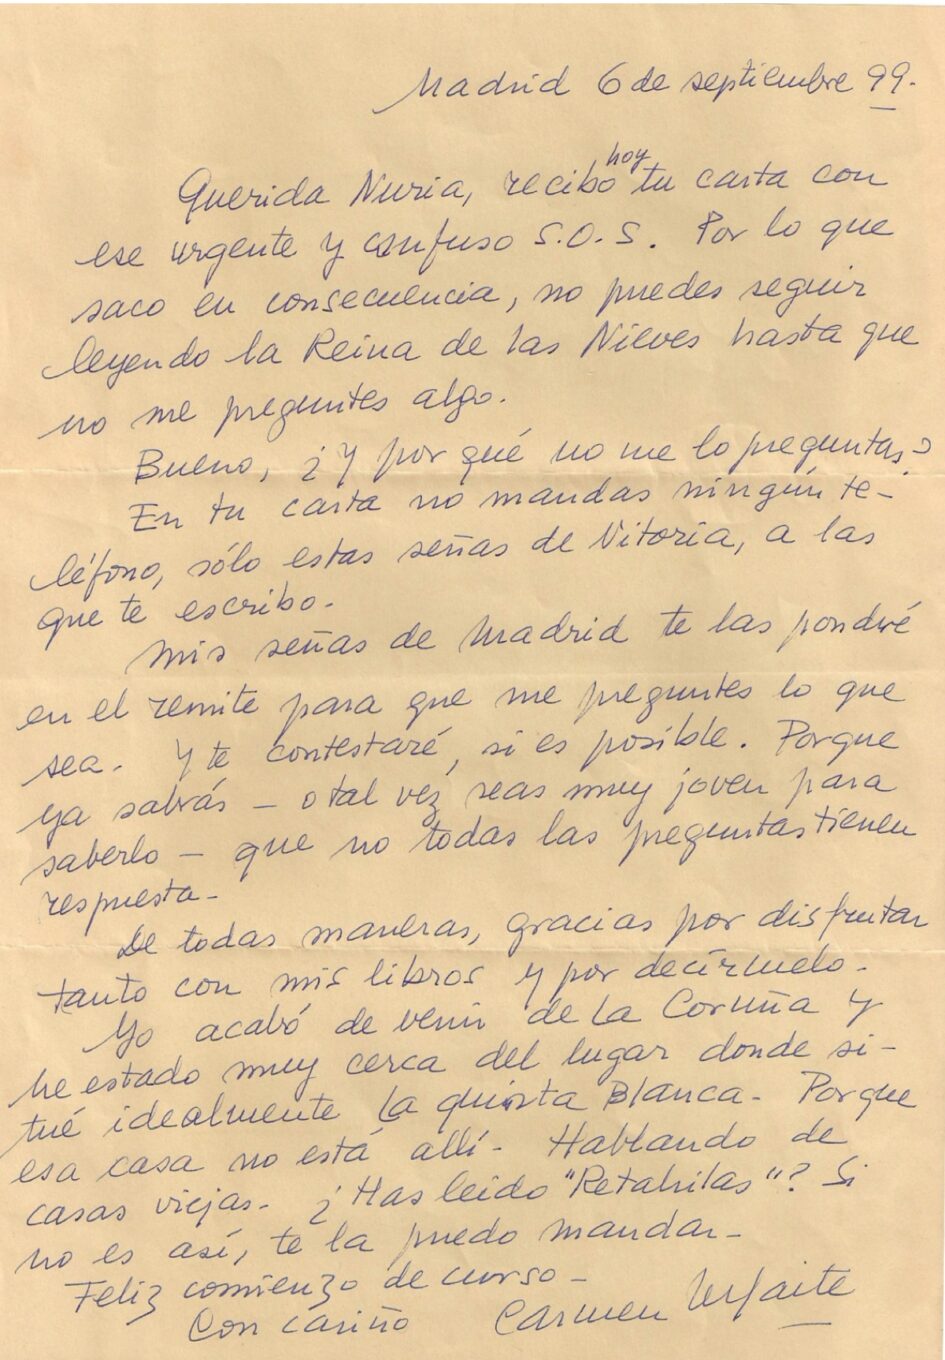 Madrid 6 de septiembre 99.
Querida Nuria, recibo hoy tu carta con
ese urgente y confuso S.O.S. Por lo que
saco en consecuencia, no puedes seguir
leyendo la Reina de las Nieves hasta que
no me preguntes algo.
Bueno, ¿Y por qué no me lo preguntas?
En tu carta no mandas ningún te-
léfono, sólo estas señas de Vitoria, a las
que te escribo.
Mis señas de Madrid te las pondré
en el remite para que me preguntes lo que
sea. Y te contestaré, si es posible. Porque
ya sabrás – o tal vez seas muy joven para
saberlo – que no todas las preguntas tienen
respuesta.
De todas maneras, gracias por disfrutar
tanto con mis libros y por decírmelo.
Yo acabó de venir de La Coruña y
he estado muy cerca del lugar donde si-
tué idealmente La quinta Blanca. Porque
esa casa no está allí. Hablando de
casas viejas. ¿Has leido "Retahilas"? Si
no es así, te la puedo mandar.
Feliz comienzo de curso.
Con cariño Carmen